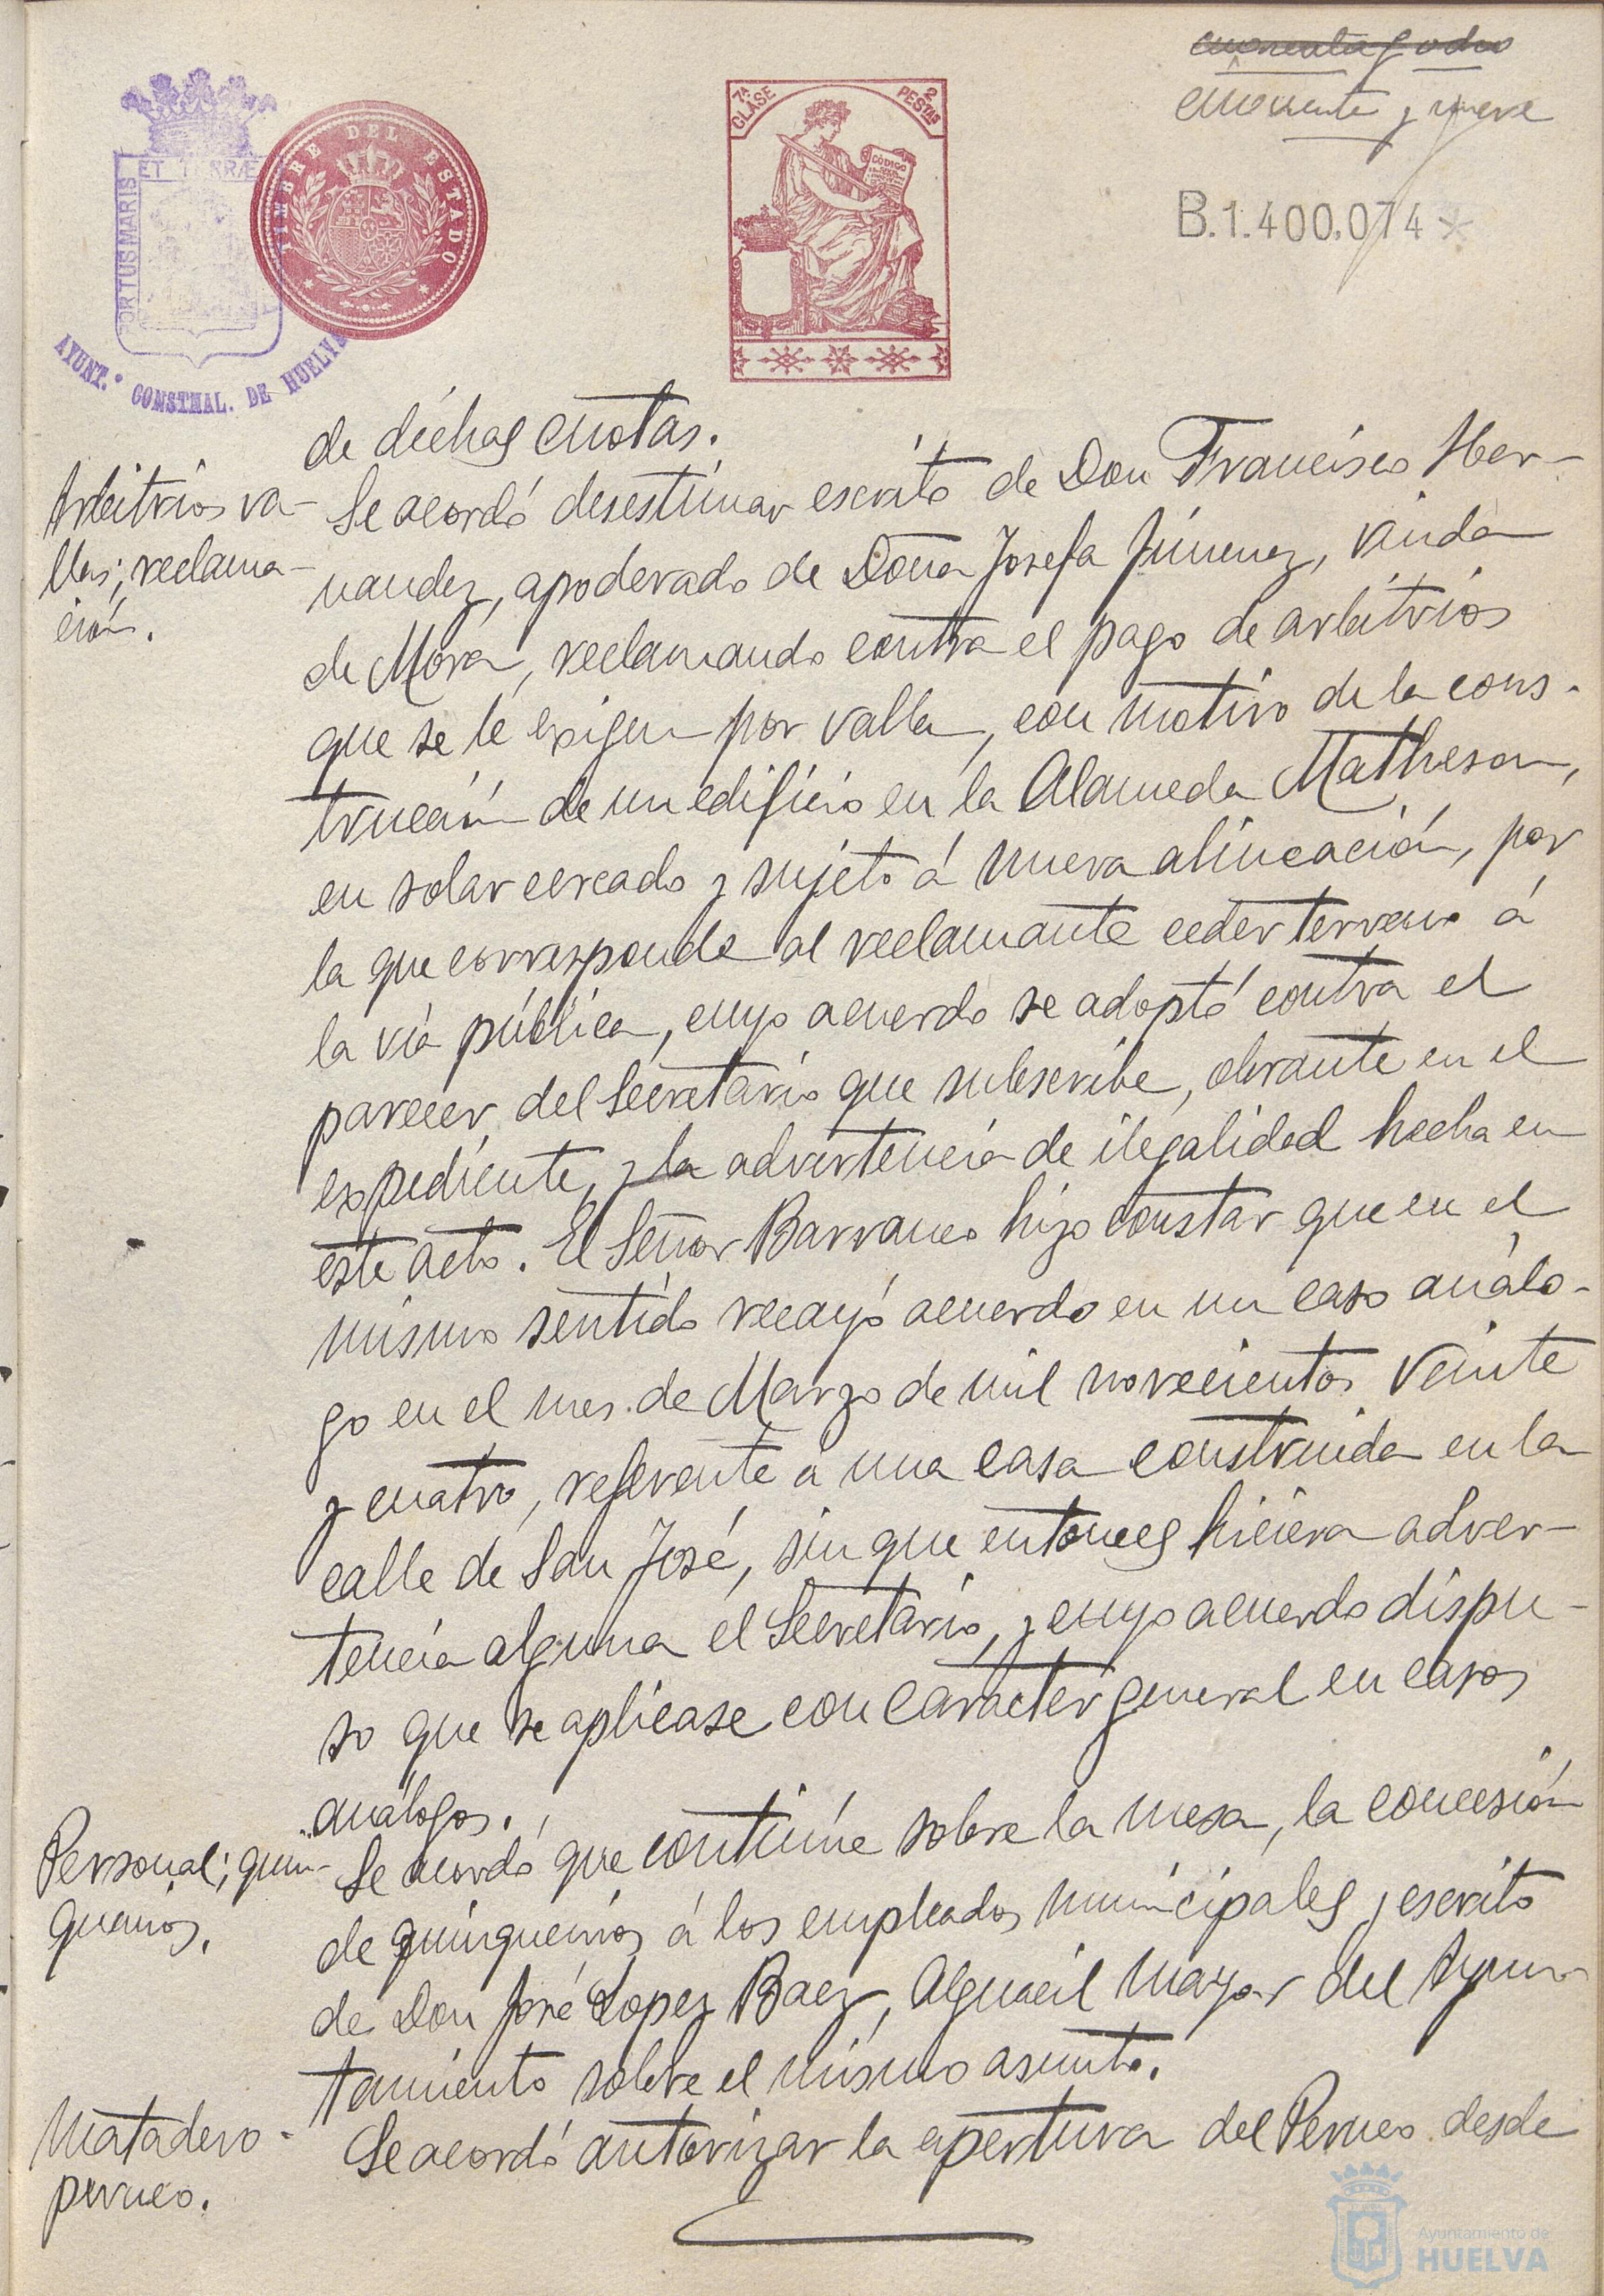 cuarenta y ocho
cuarenta y nueve
7ª CLASE
2 PESTAS
CÓDIGO
TIMBRE DEL ESTADO
PORTUS MARIS
ET TERRÆ
AYUNT.º CONSTNAL. DE HUELVA
B.1.400.074*
de dichas cuotas.
Arbitrios va-
llas; reclama-
ción.
Se acordó desestimar escrito de Don Francisco Her-
nandez, apoderado de Doña Josefa Jimenez, viuda
de Mora, reclamando contra el pago de arbitrios
que se le exigen por valla, con motivo de la cons-
trucción de un edificio en la Alameda Matheson,
en solar cercado y sujeto á nueva alineación, por
la que corresponde al reclamante ceder terreno á
la vía pública, cuyo acuerdo se adoptó contra el
parecer del Secretario que subscribe, obrante en el
expediente, y la advertencia de ilegalidad hecha en
este acto. El Señor Barranco hizo constar que en el
mismo sentido recayó acuerdo en un caso análo-
go en el mes de Marzo de mil novecientos veinte
y cuatro, referente á una casa construida en la
calle de San José, sin que entonces hiciera adver-
tencia alguna el Secretario, y cuyo acuerdo dispu-
so que se aplicase con carácter general en casos
análogos.
Personal; quin-
quenios.
Se acordó que continúe sobre la mesa, la concesión
de quinquenios á los empleados municipales y escrito
de Don José Lopez Baez, Alguacil mayor del Ayun-
tamiento sobre el mismo asunto.
Matadero-
perneo.
Se acordó autorizar la apertura del Perneo desde
Ayuntamiento de
HUELVA